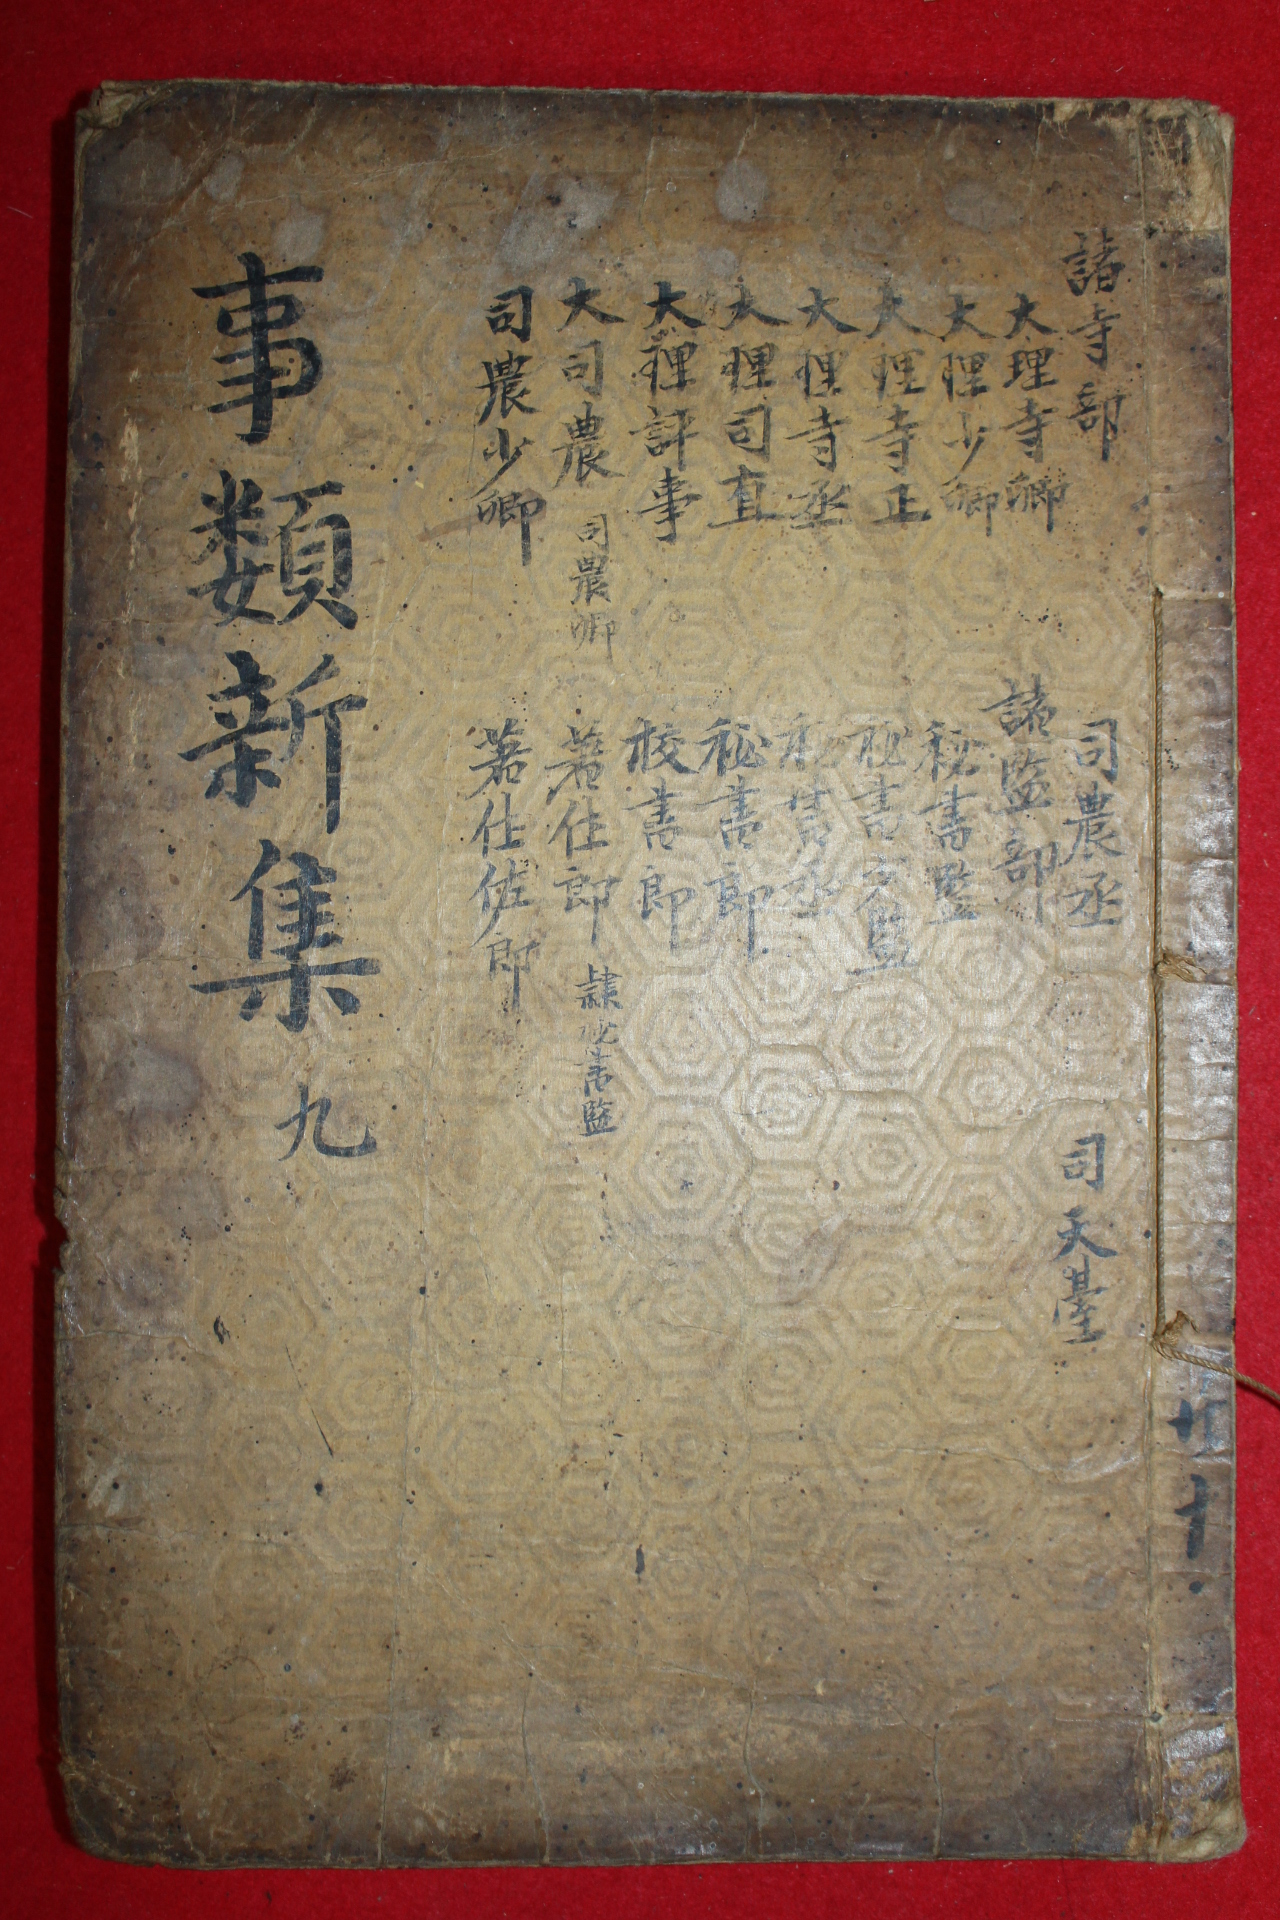 諸寺部
大理寺卿
大理少卿
大理寺正
大理寺丞
大理司直
大理評事
大司農 司農卿
司農少卿
司農丞
諸監部
秘書監
秘書少監
秘書丞
秘書郎
校書郎
著作郎 隷秘書監
著作佐郎
司天臺
事類新集 九
十